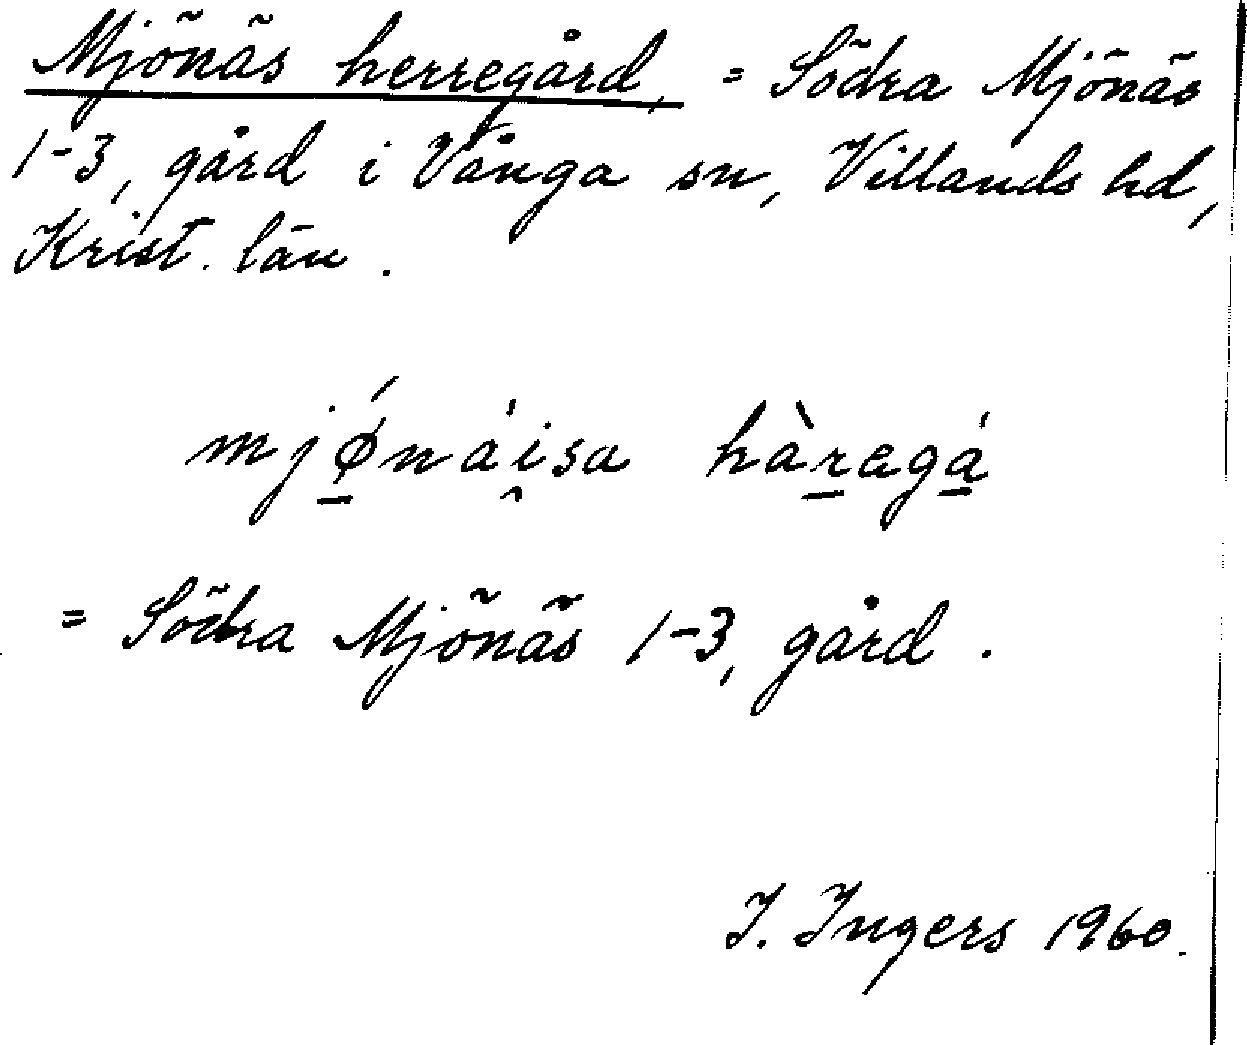 Mjönäs herregård, = Södra Mjönäs
1-3, gård i Vånga sn, Villands hd,
Krist. län.
mjǿ̱nái̯sa hàṟagá̱
= Södra Mjönäs 1-3, gård.
I. Ingers 1960.